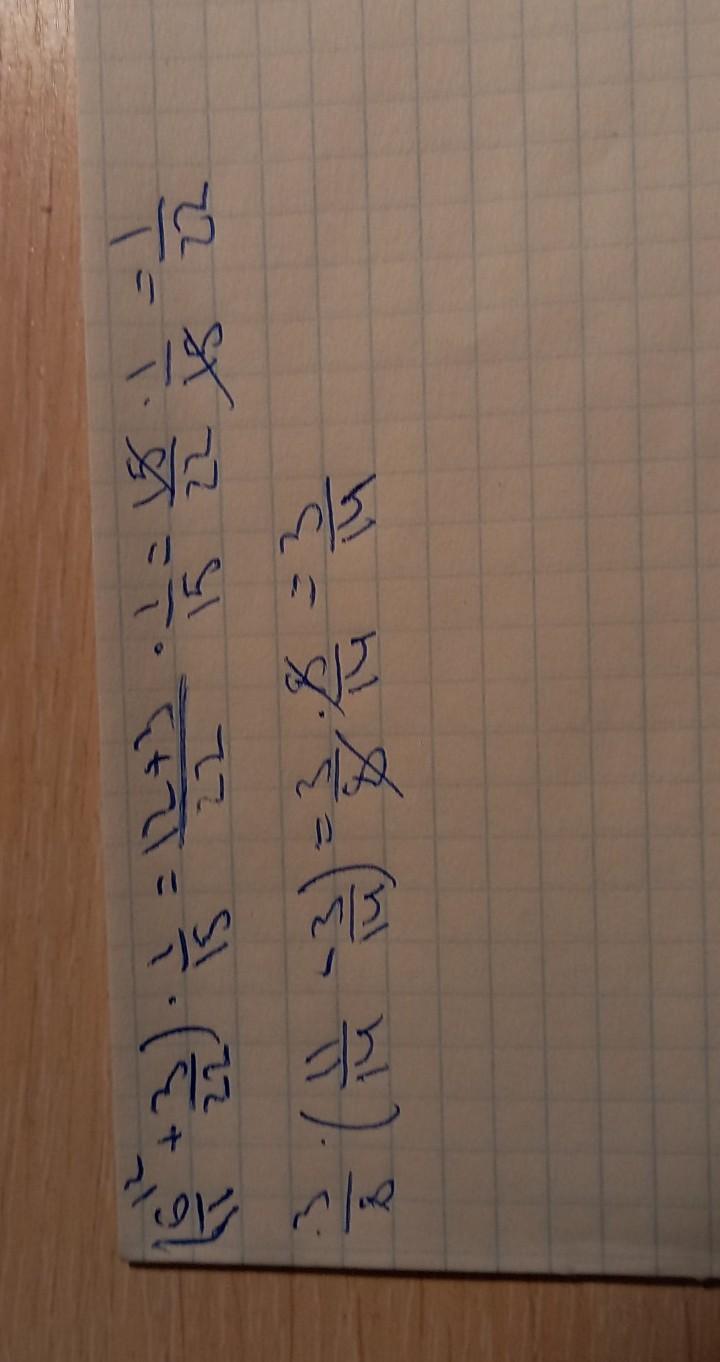 (6/11^12 + 3/22) · 1/15 = 12+3/22 · 1/15 = 15/22 · 1/15 = 1/22
3/8 · (11/14 - 3/14) = 3/8 · 8/14 = 3/14